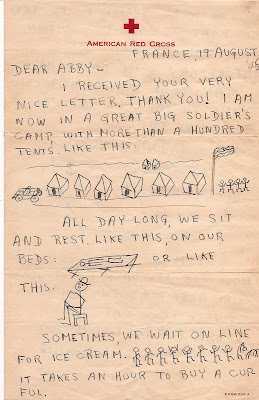 AMERICAN RED CROSS
FRANCE, 19 AUGUST
'45
DEAR ABBY —
I RECEIVED YOUR VERY
NICE LETTER. THANK YOU! I AM
NOW IN A GREAT BIG SOLDIER'S
CAMP, WITH MORE THAN A HUNDRED
TENTS. LIKE THIS:
ALL DAY LONG, WE SIT
AND REST. LIKE THIS, ON OUR
BEDS: OR LIKE
THIS:
SOMETIMES, WE WAIT ON LINE
FOR ICE CREAM.
IT TAKES AN HOUR TO BUY A CUP
FUL.